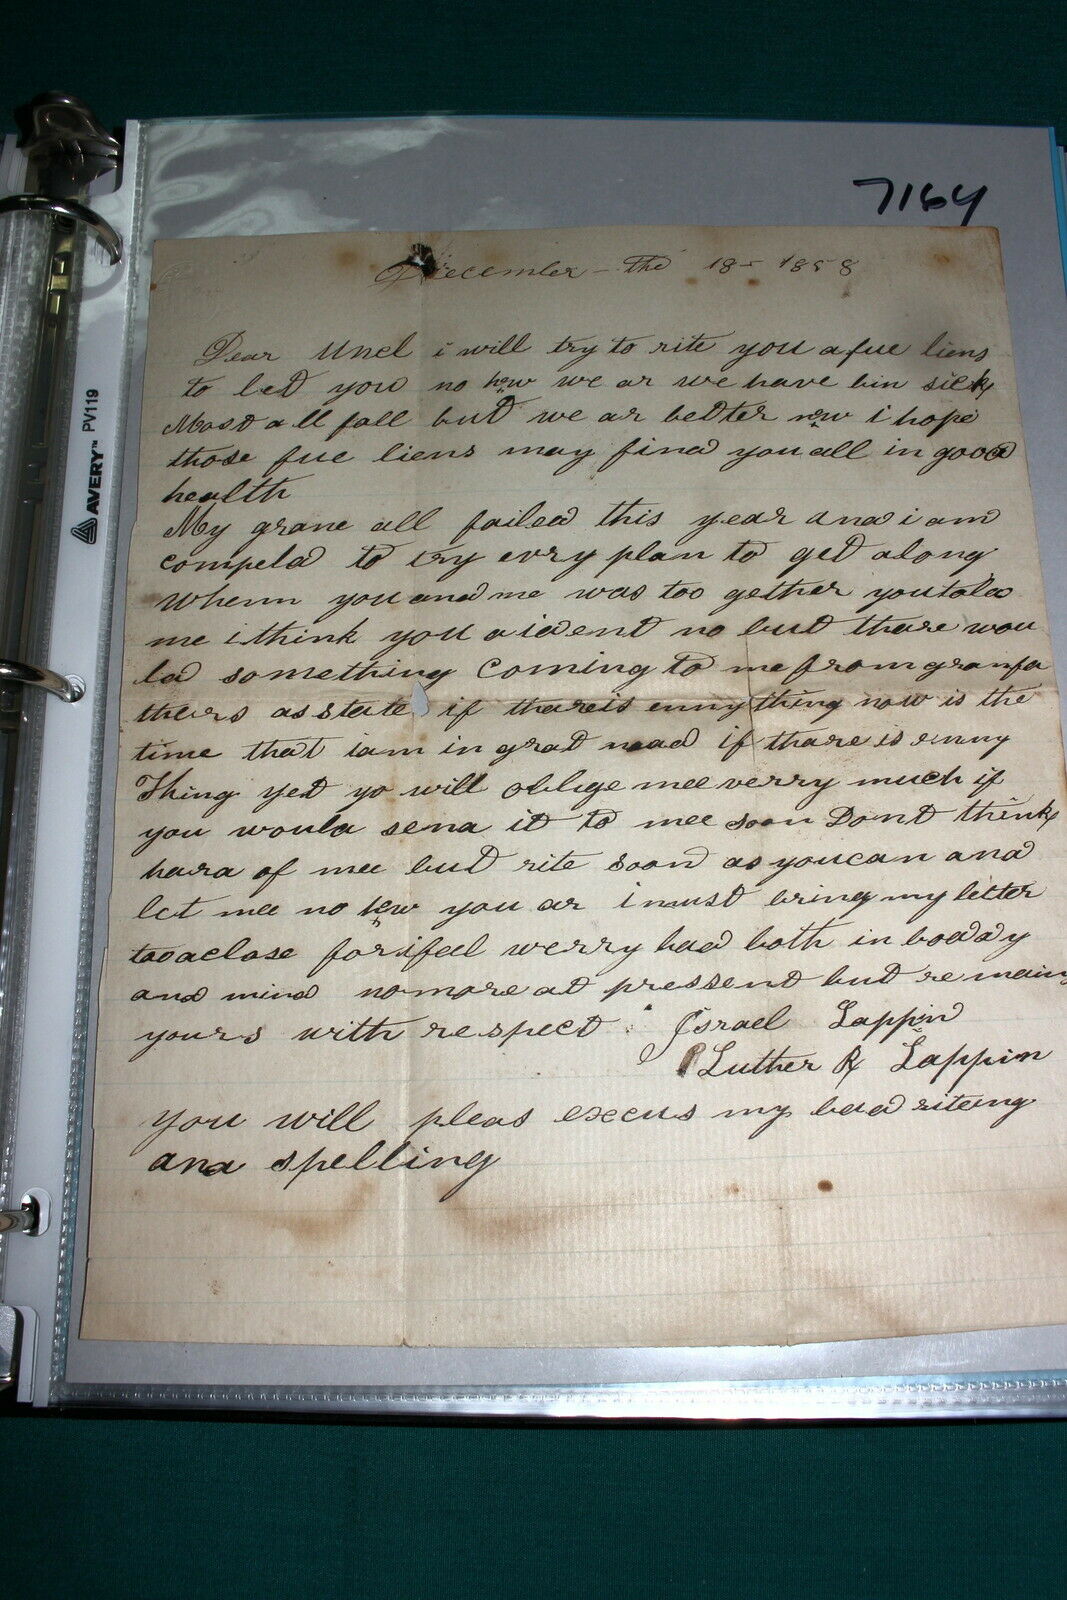 7164
AVERY™ PV119
December - the 18 - 1858
Dear Uncl i will try to rite you a fue liens
to led you no how we ar we have bin sick
Most all fall but we ar bedter now i hope
those fue liens may find you all in good
health
My grane all failed this year and i am
compeld to try evry plan to get along
whenn you and me was too gether you told
me i think you aident no but thare wou
ld something coming to me from granfa
thers asstate if thareis enny thing now is the
time that iam in grat nead if thare is enny
Thing yet yo will oblige mee verry much if
you would send it to mee soon Dont think
hard of mee but rite soon as you can and
let mee no how you ar i must bring my letter
too a close for ifeel werry bad both in boddy
and mind no more at pressent but remains
yours with respect Israel Lappin
Luther R Lappin
you will pleas excus my bad riteing
and spelling